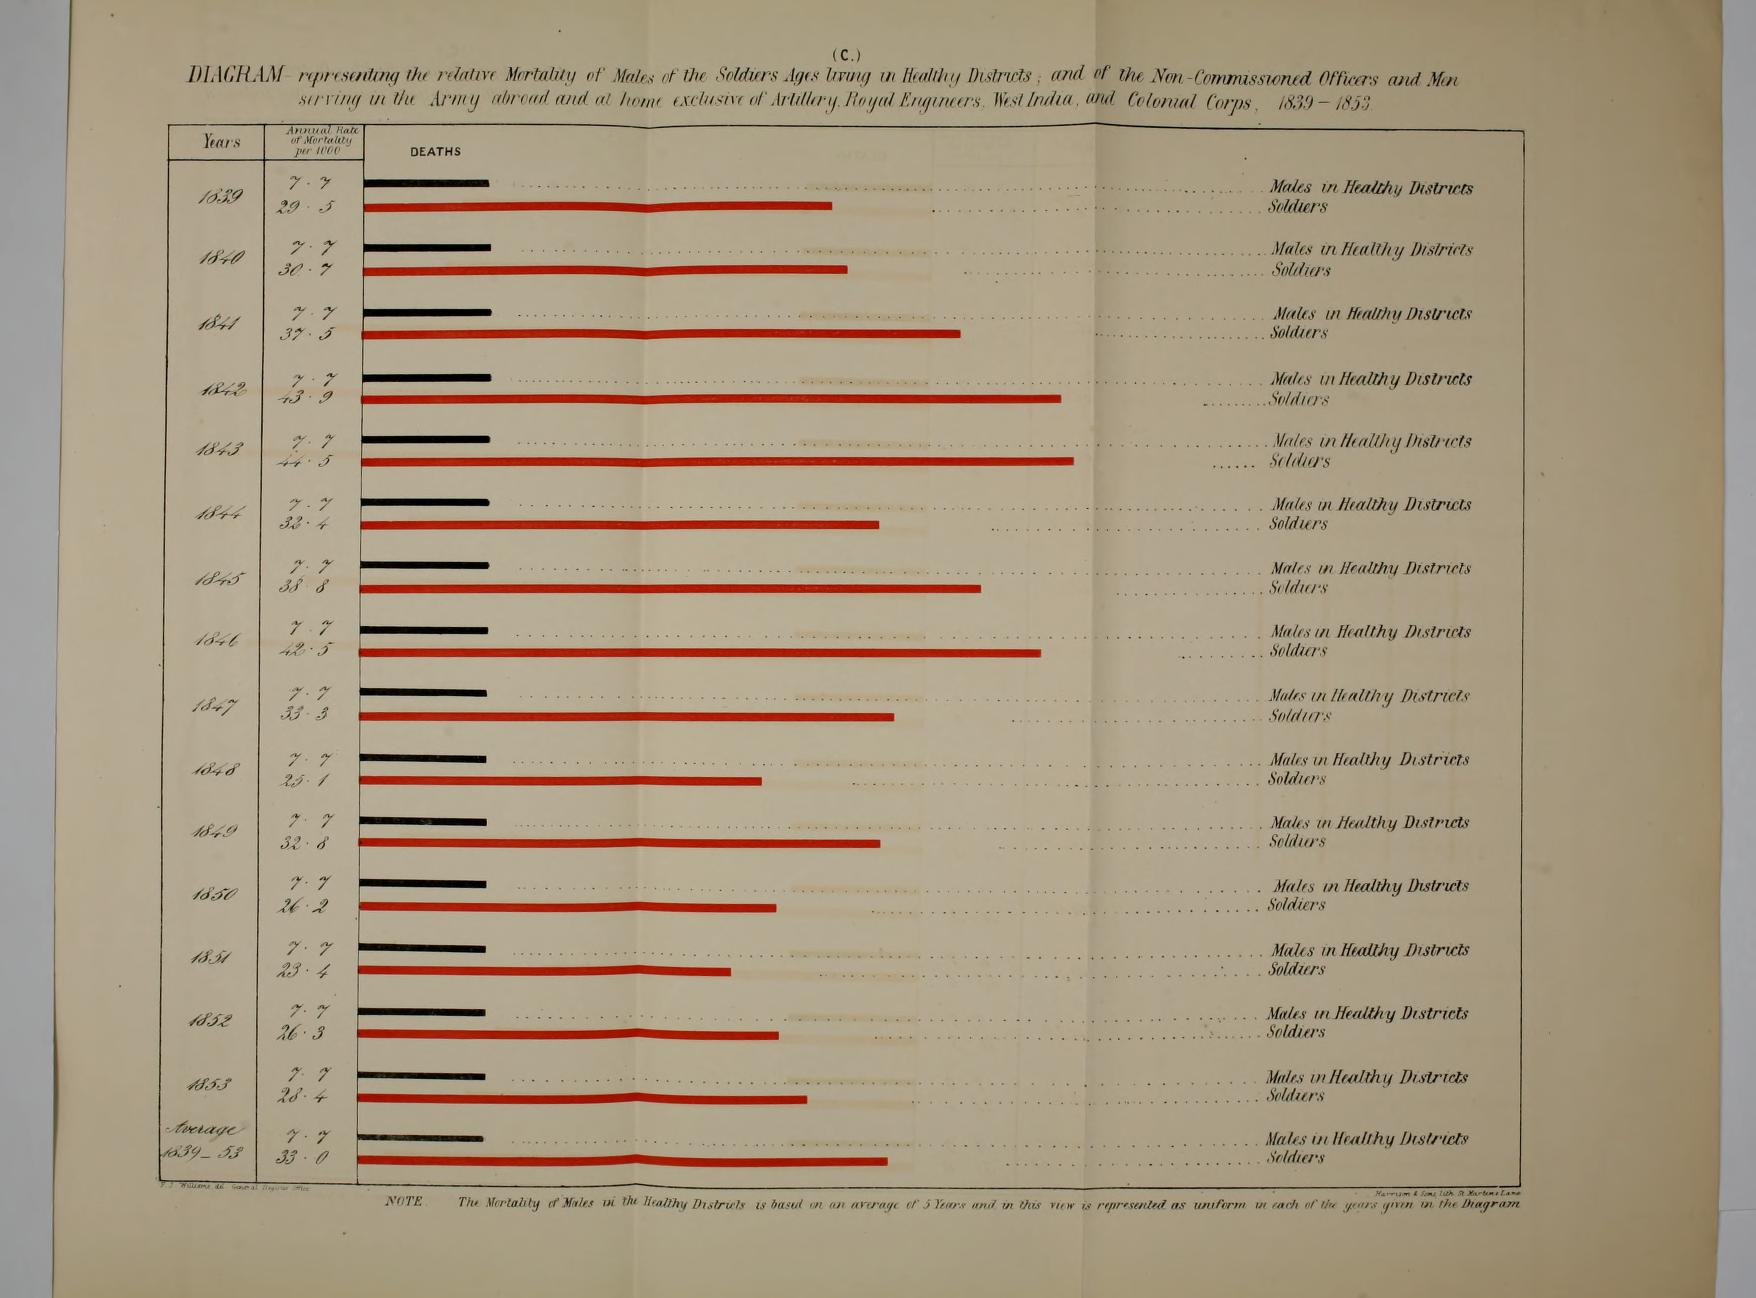 (C.)
DIAGRAM representing the relative Mortality of Males of the Soldiers Ages living in Healthy Districts; and of the Non-Commissioned Officers and Men
serving in the Army abroad and at home exclusive of Artillery, Royal Engineers, West India, and Colonial Corps, 1839 – 1853.
Years
Annual Rate
of Mortality
per 1000
DEATHS
1839
7 · 7
Males in Healthy Districts
29 · 5
Soldiers
1840
7 · 7
Males in Healthy Districts
30 · 7
Soldiers
1841
7 · 7
Males in Healthy Districts
37 · 5
Soldiers
1842
7 · 7
Males in Healthy Districts
43 · 9
Soldiers
1843
7 · 7
Males in Healthy Districts
44 · 5
Soldiers
1844
7 · 7
Males in Healthy Districts
32 · 4
Soldiers
1845
7 · 7
Males in Healthy Districts
38 8
Soldiers
1846
7 · 7
Males in Healthy Districts
42 · 5
Soldiers
1847
7 · 7
Males in Healthy Districts
33 · 3
Soldiers
1848
7 · 7
Males in Healthy Districts
25 · 1
Soldiers
1849
7 · 7
Males in Healthy Districts
32 · 8
Soldiers
1850
7 · 7
Males in Healthy Districts
26 · 2
Soldiers
1851
7 · 7
Males in Healthy Districts
23 · 4
Soldiers
1852
7 · 7
Males in Healthy Districts
26 · 3
Soldiers
1853
7 · 7
Males in Healthy Districts
28 · 4
Soldiers
Average
1839 – 53
7 · 7
Males in Healthy Districts
33 · 0
Soldiers
Williams del General Register Office
Harrison & Sons, lith. St Martins Lane
NOTE. The Mortality of Males in the Healthy Districts is based on an average of 5 Years and in this view is represented as uniform in each of the years given in the Diagram